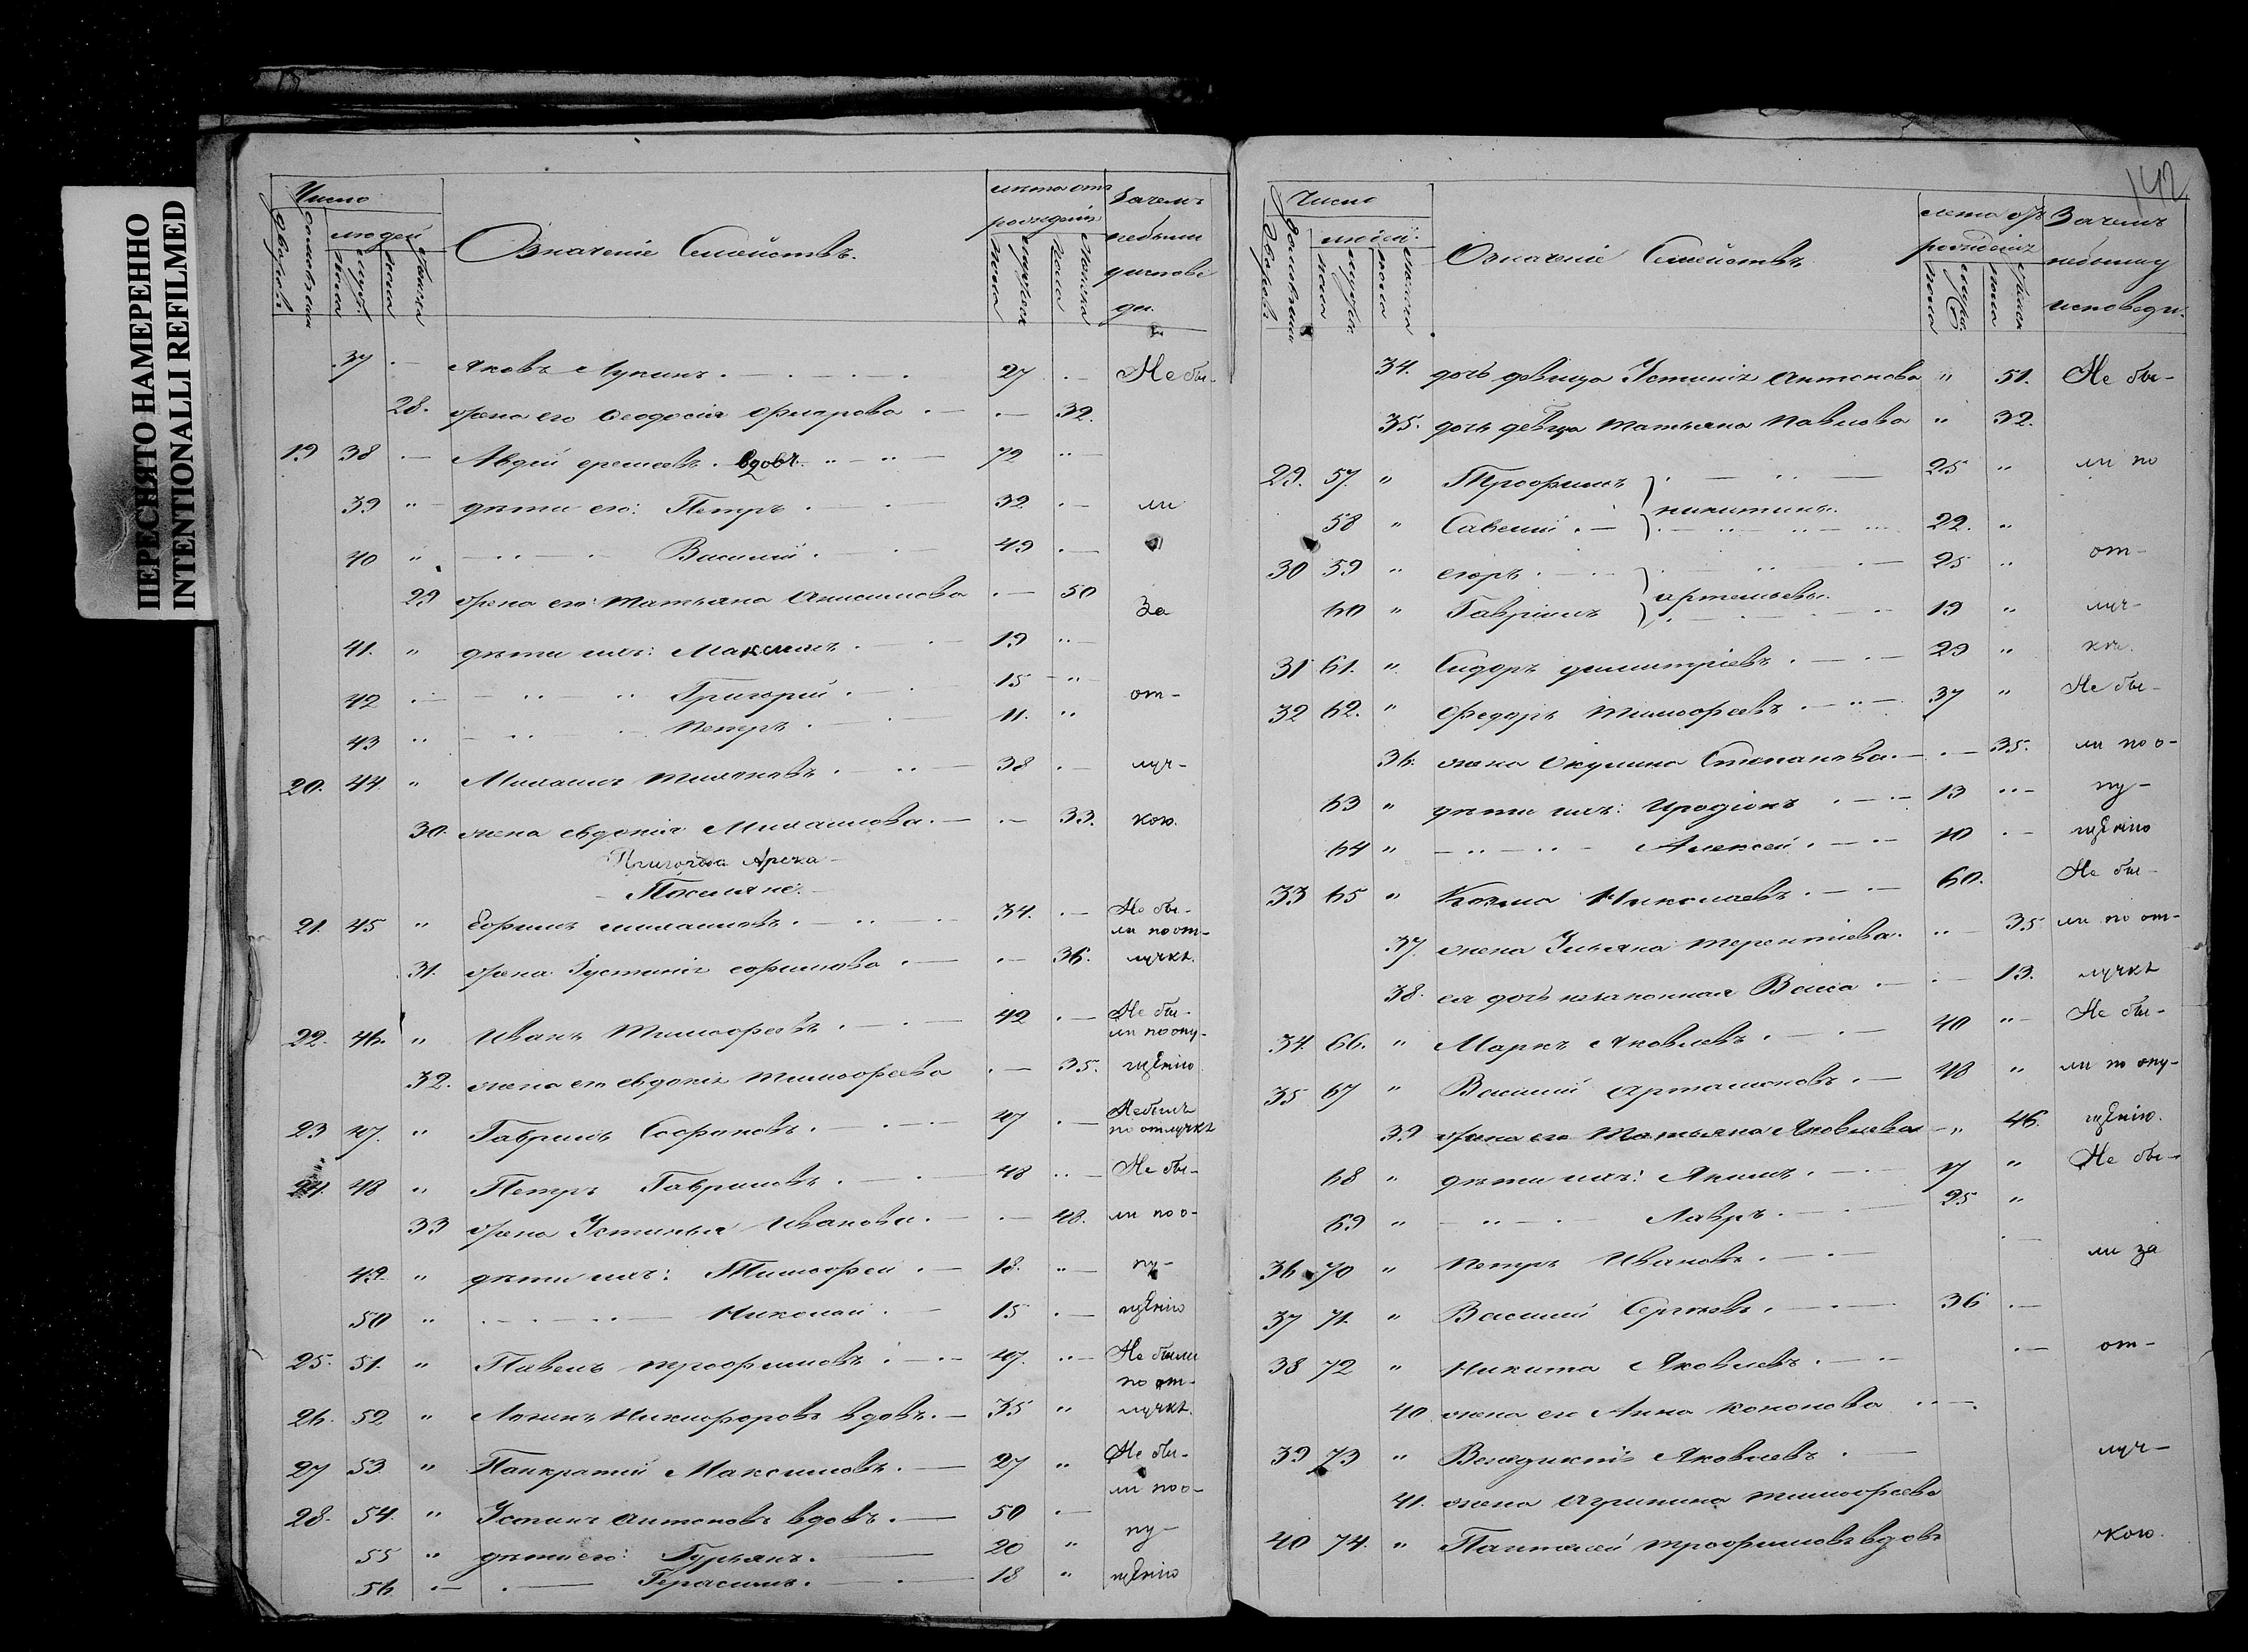 ПЕРЕСНЯТО НАМЕРЕННО
INTENTIONALLI REFILMED
Число
людей
Означеніе Семействъ.
лѣта отъ
рожденія
Зачемъ
небыли
уисповѣ
ди.
37 Яковъ Лукинъ 27 Не бы-
28. жена его Ѳеодосія 32.
19 38 Авдей вдовъ 72
39 дѣти его: Петръ 32 ли
40 Василій 49
29 жена его: Татьяна Анисимова 50 За
41. дѣти ихъ: Максимъ 19
42 Григорій 15 от-
43 Петръ 11.
20. 44 38 луч-
30. жена евдокія 33. кою.
Поселяне.
21. 45 Ефимъ 34. Не бы-
ли по от-
31. жена Іустинія ефимова 36. лучкѣ.
22. 46. Иванъ Тимофеевъ 42 Не бы-
ли по опу-
32. жена его евдокія Тимофеева 35. щенію.
23 47. Гавріилъ Софоновъ 47 Небылъ
по отлучкѣ
24. 48 Петръ Гавриловъ 48 Не бы-
33 жена Устинья Иванова 48. ли по о-
49. дѣти ихъ: Тимофей 18. пу-
50 Николай 15 щенію
25. 51. Павелъ трофимовъ 47. Не были
по от-
26. 52 Логинъ Никифоровъ вдовъ. 35 лучкѣ.
27 53 Панкратій Максимовъ 27 Не бы-
ли по о-
28. 54. Устинъ антоновъ вдовъ. 50 пу-
55 дѣти его: Гурьянъ. 20
56 Герасимъ. 18 щенію
142
Число
людей
Означеніе Семействъ
лета отъ
рожденія
Зачемъ
небылиу
исповеди.
34. дочь девица Устинія Антонова 51. Не бы-
35. дочь девица Татьяна Павлова 32.
29. 57. Трофимъ 25 ли по
никитины.
58 Савелій 22.
30 59 егоръ 25 от-
артемьевы.
60 Гавріилъ 19 луч-
31 61. Сидоръ димитріевъ 29
32 62. Федоръ Тимофеевъ 37 Не бы-
36. жена Окулина Степанова 35. ли по о-
63 дѣти ихъ: Иродіонъ 13 пу-
64 Алексей 10 щенію
33 65 Козма Николаевъ 60. Не бы-
37. жена Ульяна терентіева 35 ли по от-
38. ея дочь незаконная Васса 13. лучкѣ
34. 66. Маркъ Яковлевъ 40 Не бы-
35 67 Василій Артамоновъ 48 ли по опу-
39 жена его Татьяна Яковлева 46. щенію.
68 дѣти ихъ: Акимъ 17 Не бы-
69 Лавръ 25
36 70 Петръ Ивановъ ли за
37 71. Василій Сергеевъ 36
38 72 Никита Яковлевъ от-
40 жена его Анна Кононова
39 73 Венедиктъ Яковлевъ луч-
41. жена Агрипина тимофеева
40 74. Пантелей трофимовъ вдовъ кою.